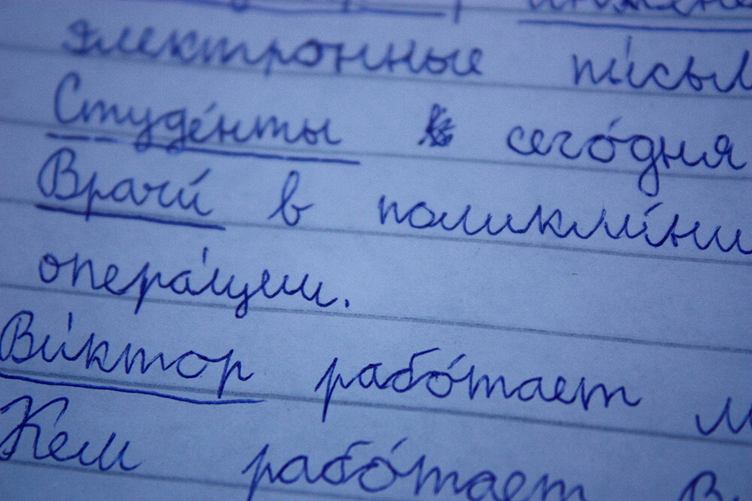 инжене
электронные пи́сьм
Студе́нты сего́дня
Врачи́ в поликли́ни
опера́ции.
Ви́ктор рабо́тает м
Кем рабо́тает В